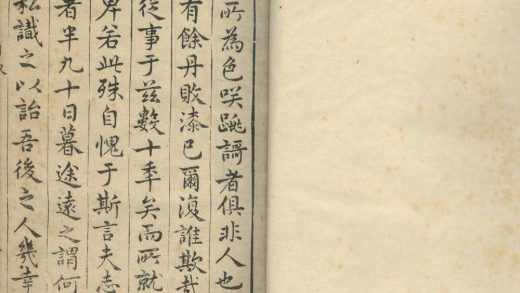 所為色咲跳謌者俱非人也
有餘丹敗漆已爾復誰欺哉
從事于茲數十秊矣而所就
卑若此殊自愧于斯言夫志
者半九十日暮途遠之謂何
私識之以詒吾後之人幾幸